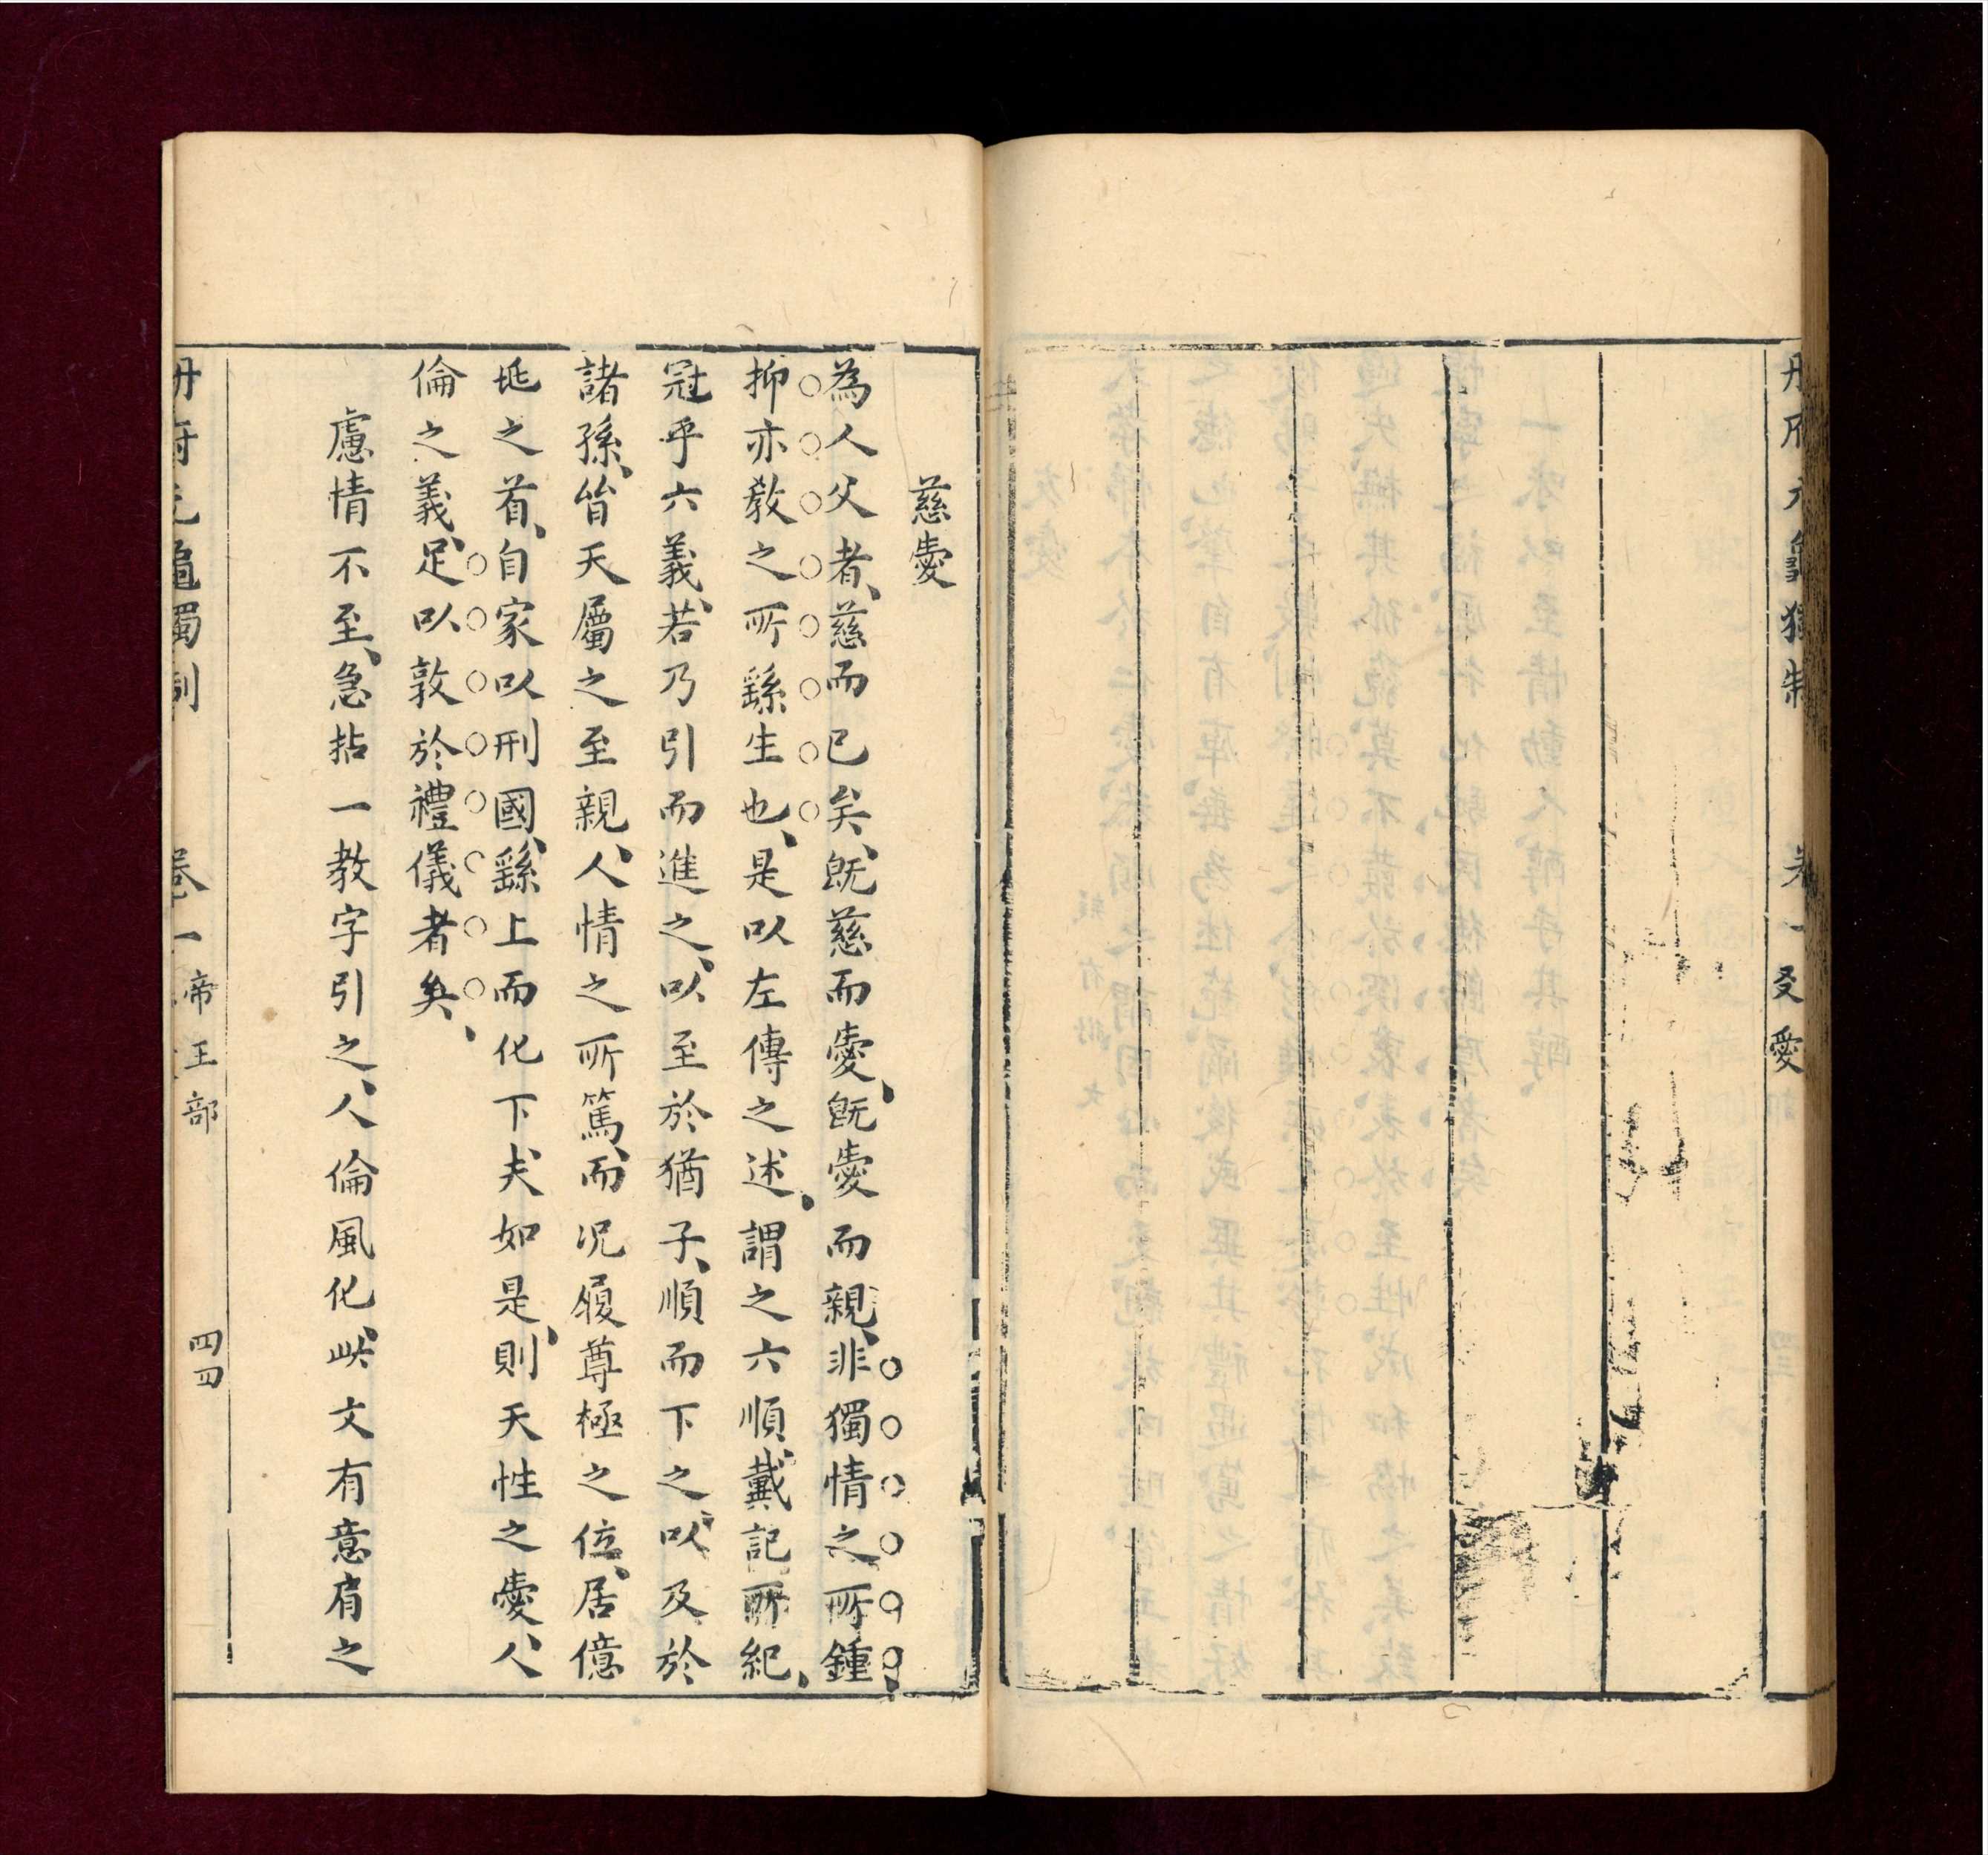 冊府元龜獨制 卷一 友愛
慈愛
為人父者、慈而已矣、既慈而愛、既愛而親、非獨情之所鍾、
抑亦教之所繇生也、是以左傳之述、謂之六順、戴記所紀、
冠乎六義、若乃引而進之、以至於猶子、順而下之、以及於
諸孫、皆天屬之至親、人情之所篤、而况履尊極之位、居億
兆之首、自家以刑國、繇上而化下、夫如是、則天性之愛、人
倫之義、足以敦於禮儀者矣、
慮情不至、急拈一教字引之、人倫風化、此文有意肩之
冊府元龜獨制 卷一 帝王部 四四